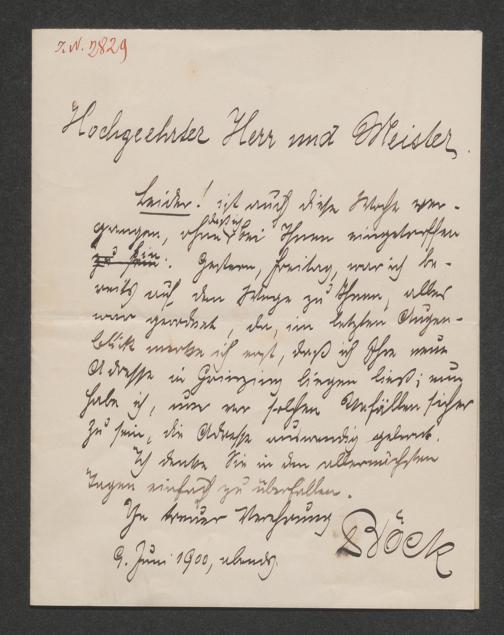 z. N. 2829
Hochgeehrter Herr und Meister.
Leider! ist auch diese Woche ver-
gangen, ohne daß ich bei Ihnen eingetroffen
zu sein bin. Gestern, Freitag, war ich be-
reits auf dem Wege zu Ihnen, alles
war geordnet, da, im letzten Augen-
blick merke ich erst, daß ich Ihre neue
Adresse in Grinzing liegen ließ; nun
habe ich, um vor solchen Unfällen sicher
zu sein, die Adresse auswendig gelernt.
Ich denke Sie in den allernächsten
Tagen einfach zu überfallen.
In treuer Verehrung
Böck
9. Juni 1900, abends.